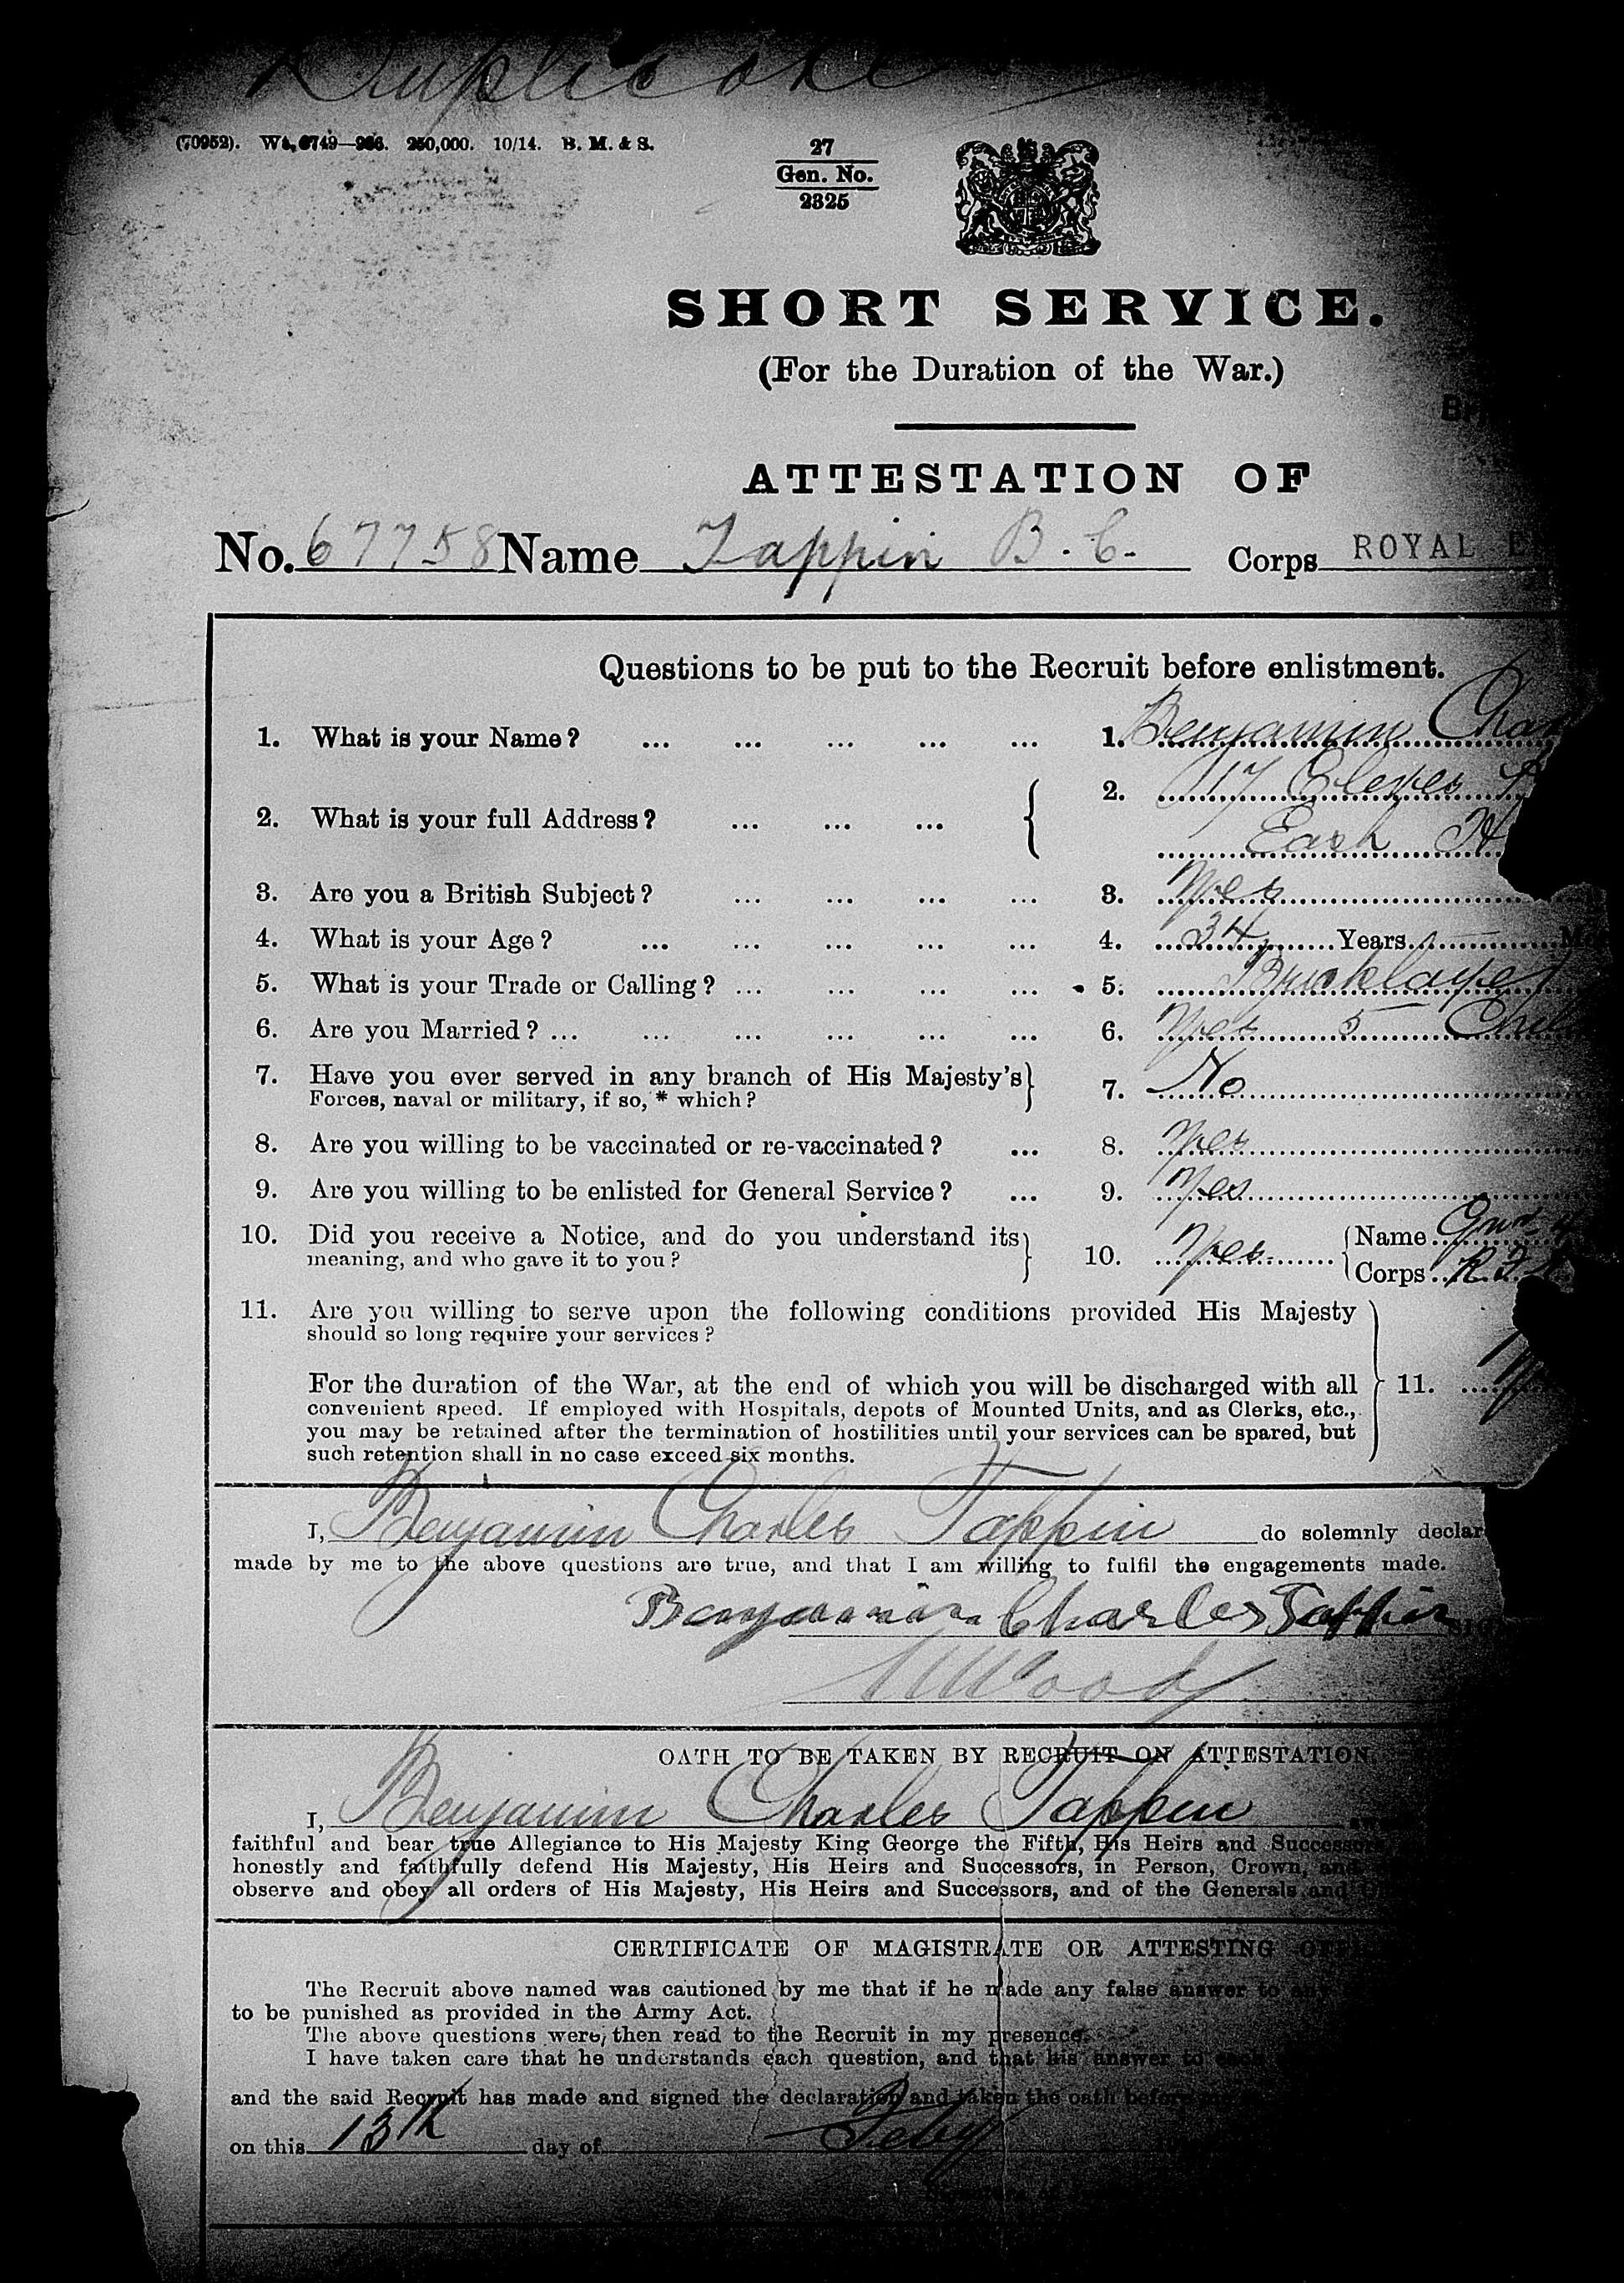 Duplicate
(70952). Wt. 6749—966. 250,000. 10/14. B. M. & S.
27
Gen. No.
2325
SHORT SERVICE.
(For the Duration of the War.)
ATTESTATION OF
No. 67758 Name Tappin B. C. Corps ROYAL E
Questions to be put to the Recruit before enlistment.
1. What is your Name? ... ... ... ... ... 1. Benjamin Char
2. What is your full Address? ... ... ... 2. 117
East H
3. Are you a British Subject? ... ... ... ... 3. Yes
4. What is your Age? ... ... ... ... ... 4. 34 Years
5. What is your Trade or Calling? ... ... ... ... 5. Bricklayer
6. Are you Married? ... ... ... ... ... ... 6. Yes 5 Chil
7. Have you ever served in any branch of His Majesty's
Forces, naval or military, if so, * which? 7. No
8. Are you willing to be vaccinated or re-vaccinated? ... 8. Yes
9. Are you willing to be enlisted for General Service? ... 9. Yes
10. Did you receive a Notice, and do you understand its
meaning, and who gave it to you? 10. Yes Name
Corps
11. Are you willing to serve upon the following conditions provided His Majesty
should so long require your services?
For the duration of the War, at the end of which you will be discharged with all 11.
convenient speed. If employed with Hospitals, depots of Mounted Units, and as Clerks, etc.,
you may be retained after the termination of hostilities until your services can be spared, but
such retention shall in no case exceed six months.
I, Benjamin Charles Tappin do solemnly declar
made by me to the above questions are true, and that I am willing to fulfil the engagements made.
Benjamin Charles Tappin
Wood
OATH TO BE TAKEN BY RECRUIT ON ATTESTATION.
I, Benjamin Charles Tappin
faithful and bear true Allegiance to His Majesty King George the Fifth, His Heirs and Successors
honestly and faithfully defend His Majesty, His Heirs and Successors, in Person, Crown, and
observe and obey all orders of His Majesty, His Heirs and Successors, and of the Generals and
CERTIFICATE OF MAGISTRATE OR ATTESTING OFF
The Recruit above named was cautioned by me that if he made any false answer to any
to be punished as provided in the Army Act.
The above questions were then read to the Recruit in my presence.
I have taken care that he understands each question, and that his answer to each
and the said Recruit has made and signed the declaration and taken the oath before
on this 13th day of Feby